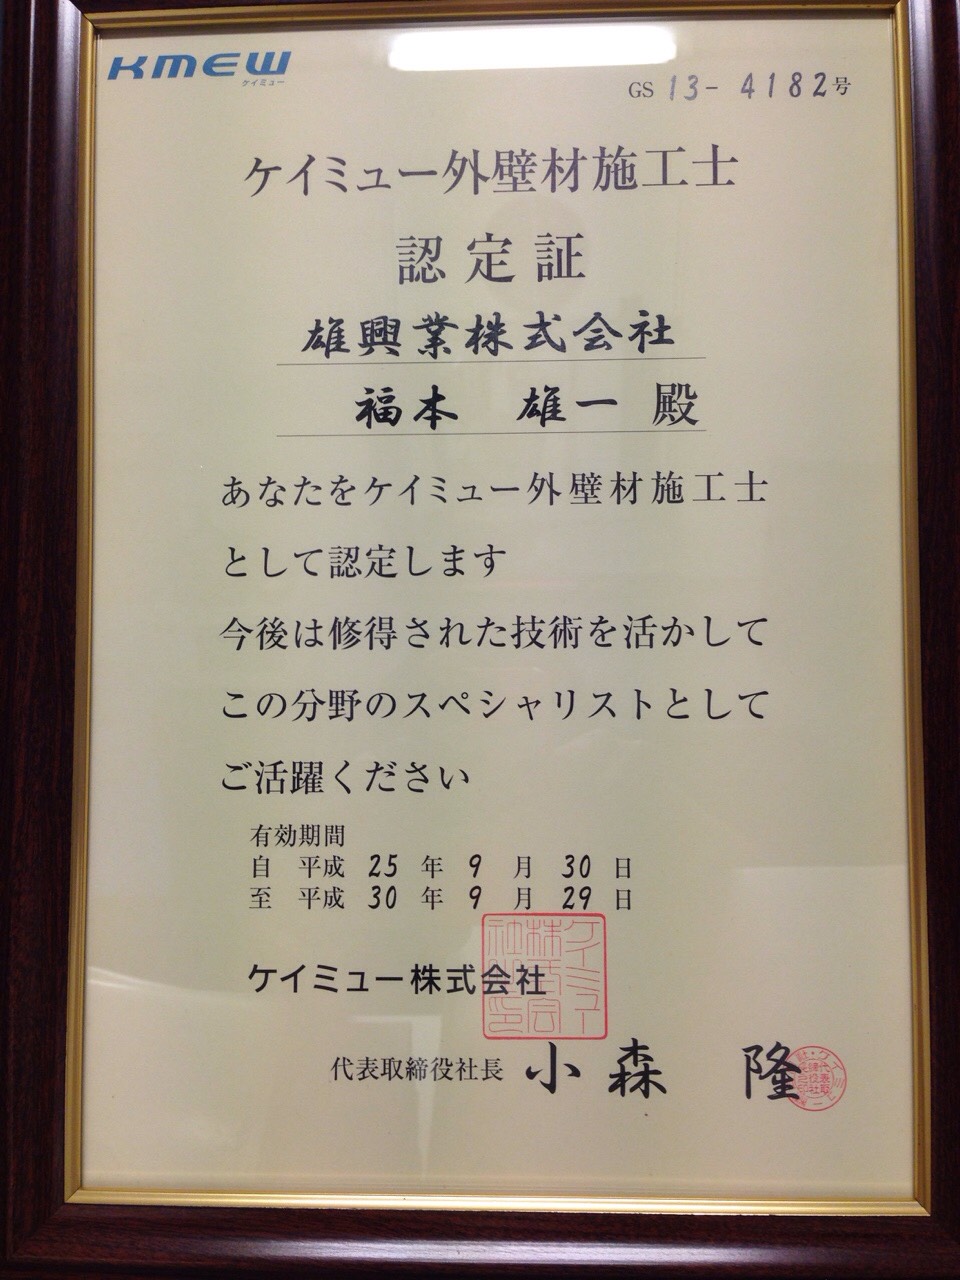 KMEW
ケイミュー
GS 13-4182号
ケイミュー外壁材施工士
認定証
雄興業株式会社
福本 雄一 殿
あなたをケイミュー外壁材施工士
として認定します
今後は修得された技術を活かして
この分野のスペシャリストとして
ご活躍ください
有効期間
自 平成 25 年 9 月 30 日
至 平成 30 年 9 月 29 日
ケイミュー株式会社
ケイミュー株式会社之印
代表取締役社長 小森 隆